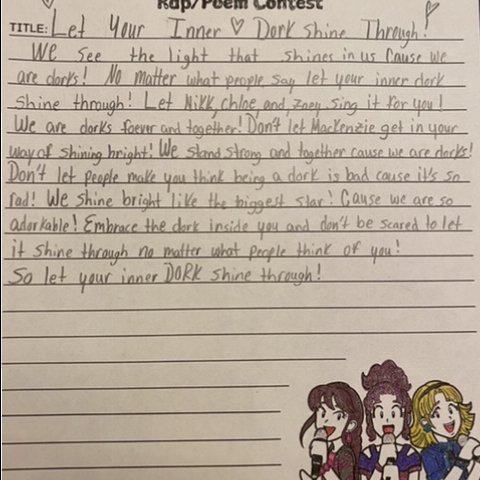 Rap/Poem Contest
TITLE: Let Your Inner ♡ Dork Shine Through!
We see the light that shines in us cause we
are dorks! No matter what people say let your inner dork
shine through! Let Nikk, chloe, and, zoey sing it for you!
We are dorks foever and together! Don't let Mackenzie get in your
way of shining bright! We stand strong and together cause we are dorks!
Don't let people make you think being a dork is bad cause it's so
rad! We shine bright like the biggest star! Cause we are so
adorkable! Embrace the dork inside you and don't be scared to let
it shine through no matter what people think of you!
So let your inner DORK shine through!